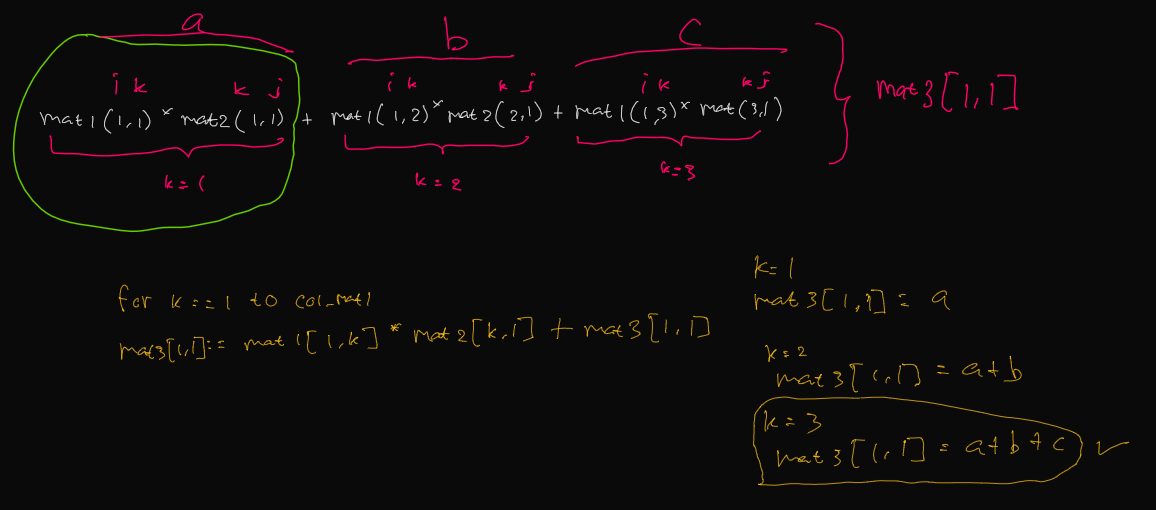 a b c
i k k j i k k j i k k j
mat1(1,1) * mat2(1,1) + mat1(1,2) * mat2(2,1) + mat1(1,3) * mat(3,1) } mat3[1,1]
k=1 k=2 k=3
for k:=1 to col_mat1
mat3[1,1]:= mat1[1,k] * mat2[k,1] + mat3[1,1]
k=1
mat3[1,1] = a
k=2
mat3[1,1] = a+b
k=3
mat3[1,1] = a+b+c ✓